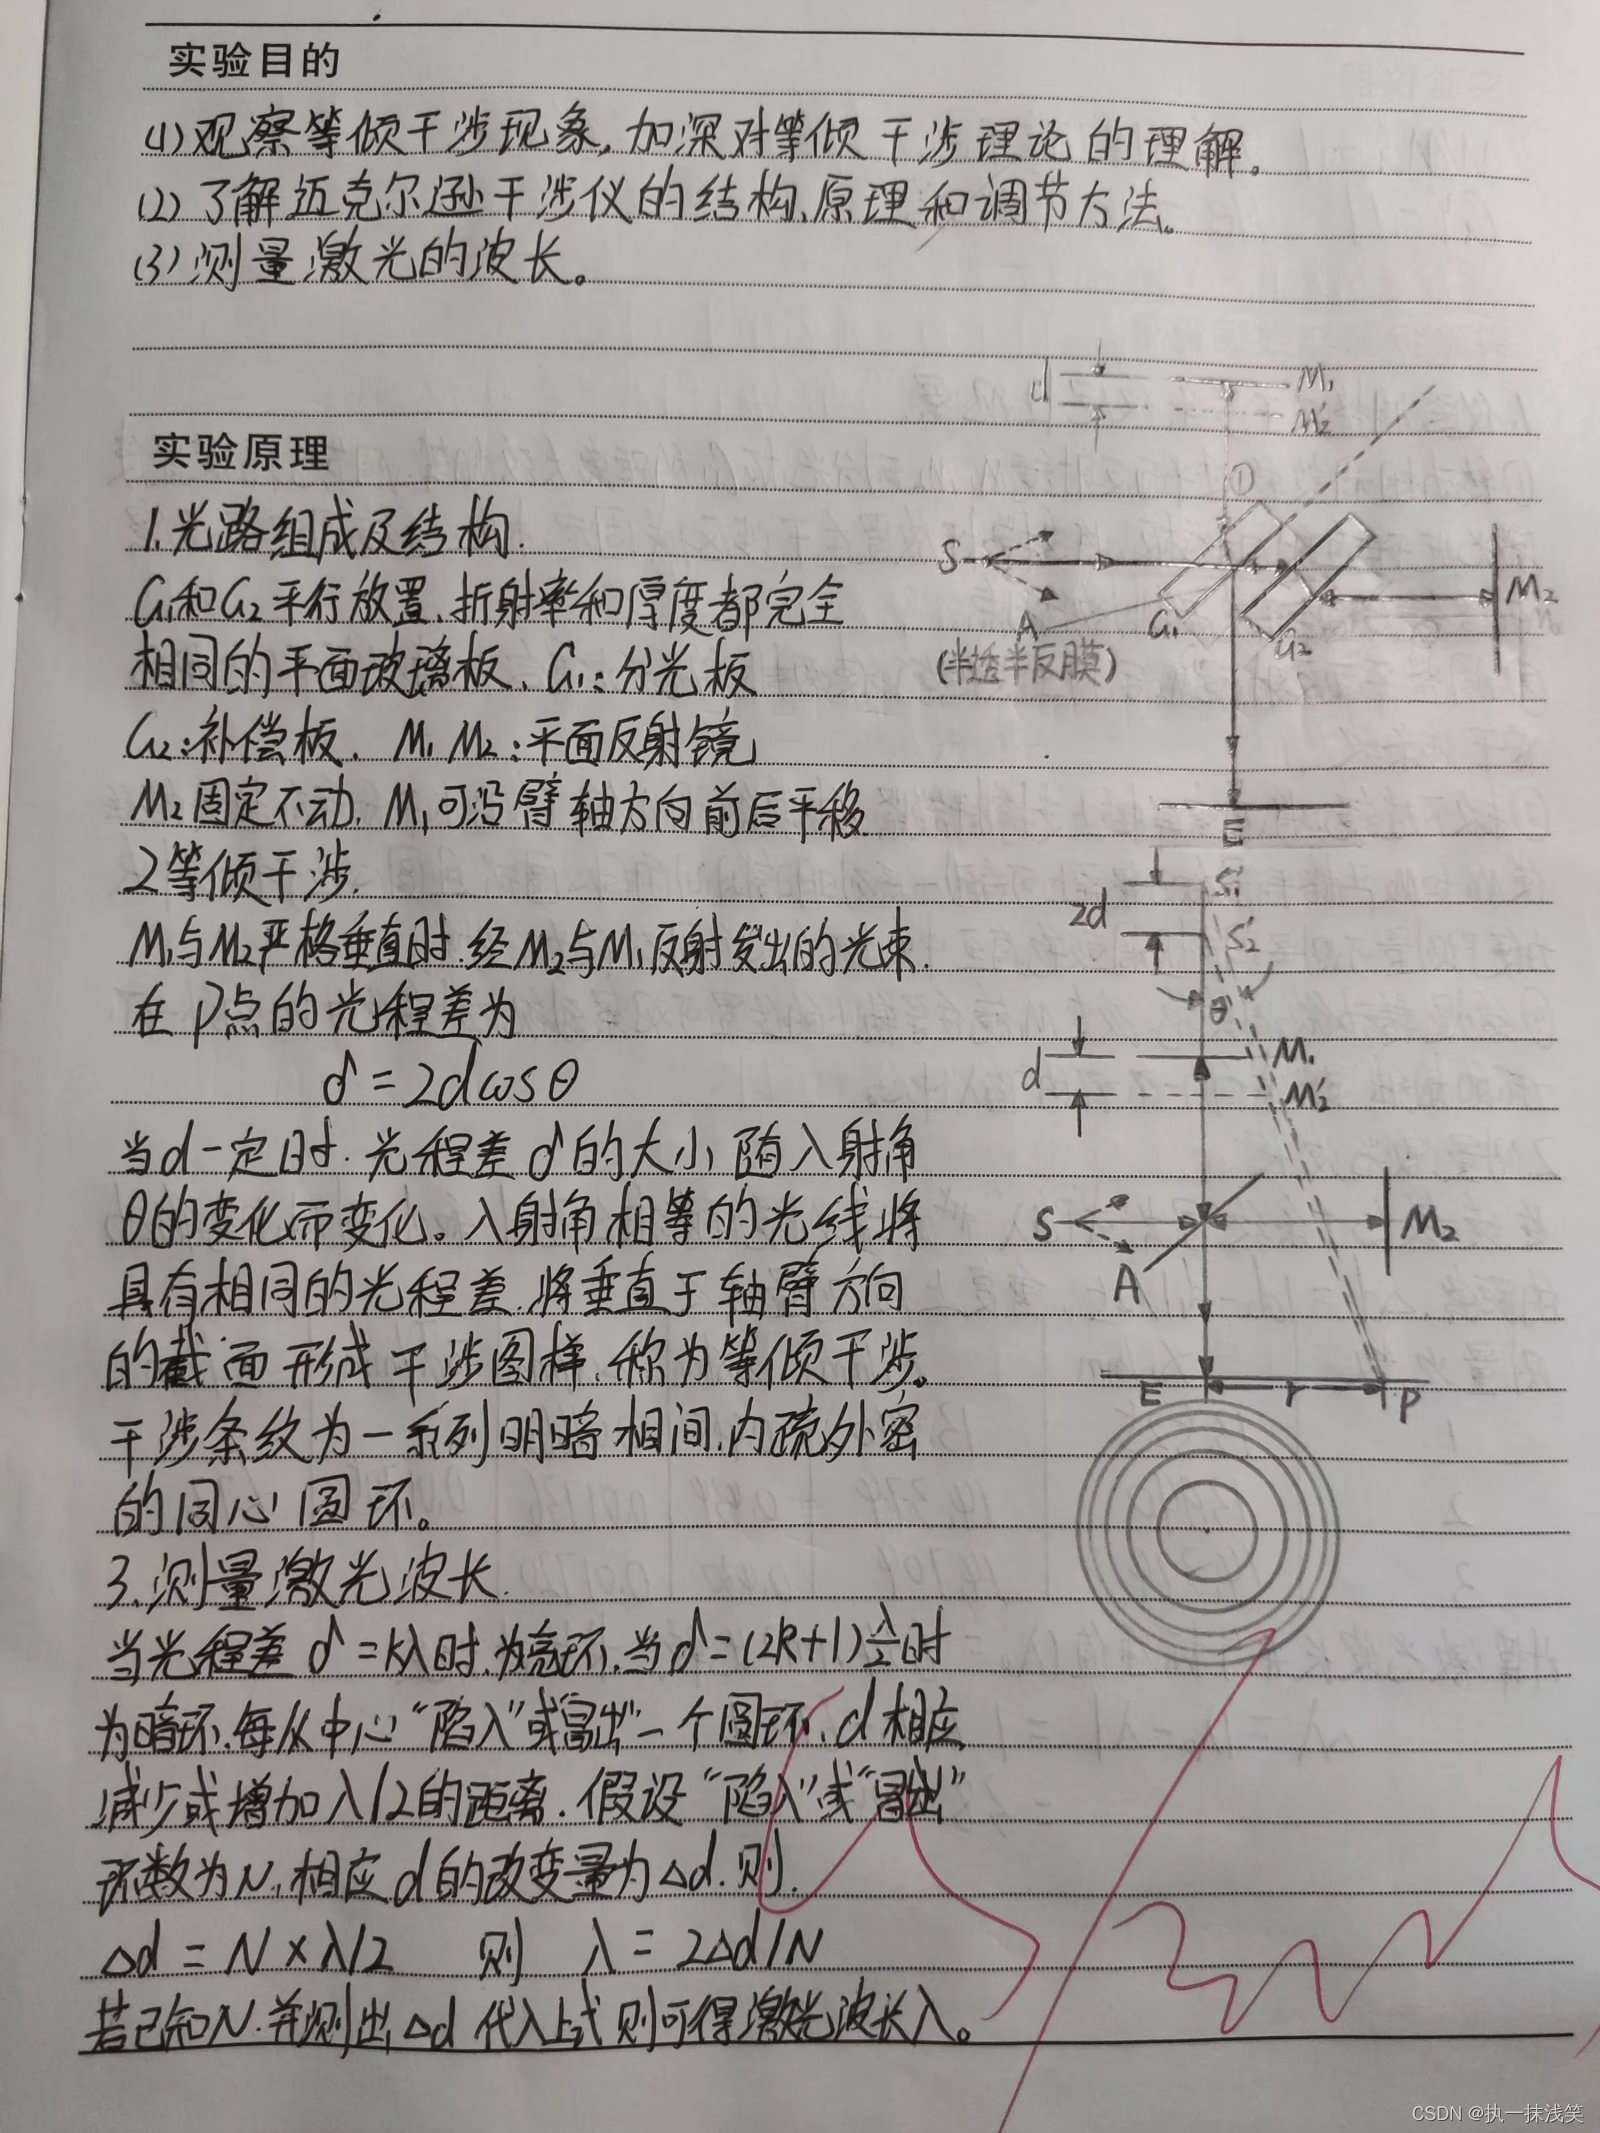 实验目的
(1)观察等倾干涉现象,加深对等倾干涉理论的理解。
(2)了解迈克尔逊干涉仪的结构、原理和调节方法。
(3)测量激光的波长。
实验原理
1.光路组成及结构.
G₁和G₂平行放置、折射率和厚度都完全
相同的平面玻璃板、G₁:分光板
G₂:补偿板、M₁ M₂:平面反射镜
M₂固定不动,M₁可沿臂轴方向前后平移
2等倾干涉.
M₁与M₂严格垂直时.经M₂与M₁反射发出的光束.
在P点的光程差为
δ=2dcosθ
当d一定时.光程差δ的大小随入射角
θ的变化而变化。入射角相等的光线将
具有相同的光程差.将垂直于轴臂方向
的截面形成干涉图样,称为等倾干涉。
干涉条纹为一系列明暗相间,内疏外密
的同心圆环。
3.测量激光波长.
当光程差δ=kλ时,为亮环,当δ=(2k+1)λ/2时
为暗环.每从中心“陷入”或“冒出”一个圆环,d相应
减少或增加λ/2的距离.假设“陷入”或“冒出”
环数为N,相应d的改变量为Δd.则.
Δd=N×λ/2 则 λ=2Δd/N
若已知N.并测出Δd代入上式则可得激光波长λ。
d
M₁
M₂′
①
S
A
(半透半反膜)
G₁
G₂
M₂
E
2d
S₁′
S₂′
θ
d
M₁
M₂′
S
A
M₂
E
r
P
CSDN @执一抹浅笑